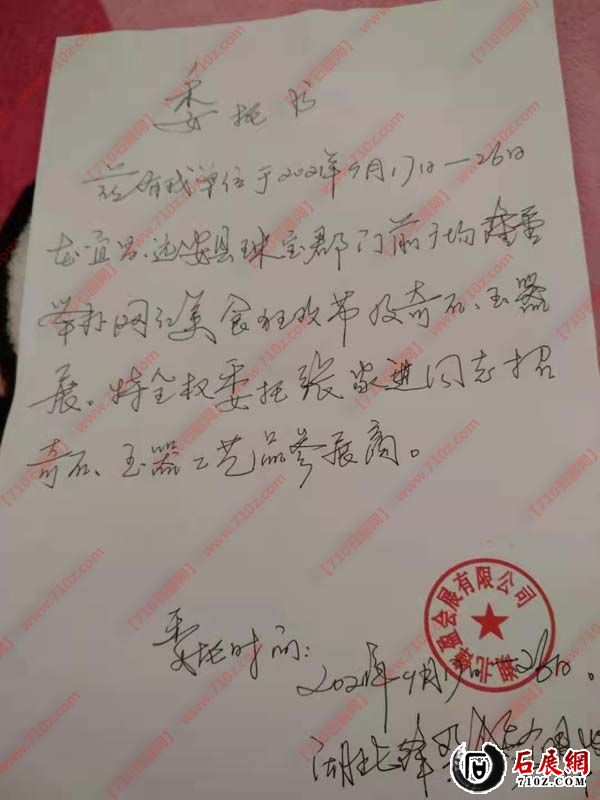 委托书
兹有我单位于2021年9月17日—26日
在宜昌.远安县珠宝郡门前广场隆重
举办网红美食狂欢节及奇石、玉器
展。特全权委托张家进同志招
奇石、玉器工艺品参展商。
委托时间：
2021年9月17日—26日。
湖北
会展有限公司
石展網
www.710z.com
【710石展网】